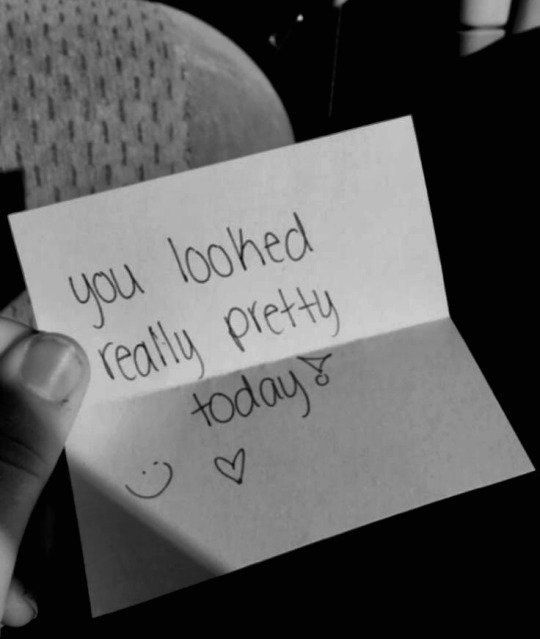 you looked
really pretty
today!
:) ♡